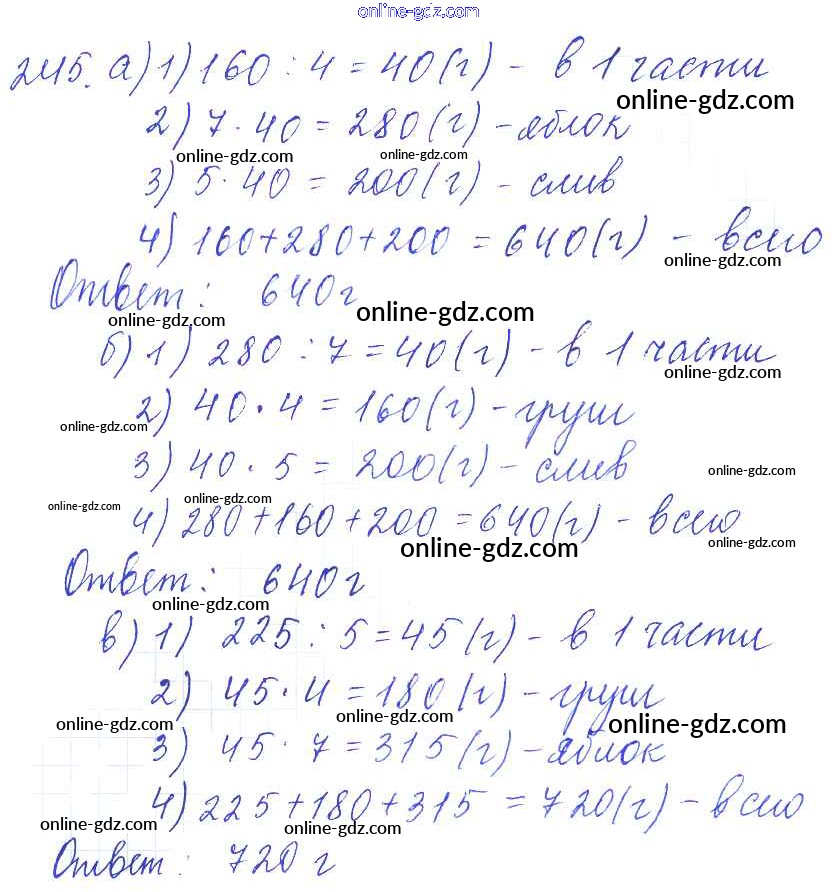 online-gdz.com
245. а) 1) 160 : 4 = 40 (г) - в 1 части
online-gdz.com
2) 7 · 40 = 280 (г) - яблок
online-gdz.com online-gdz.com
3) 5 · 40 = 200 (г) - слив
4) 160 + 280 + 200 = 640 (г) - всего
online-gdz.com
Ответ: 640 г
online-gdz.com online-gdz.com
б) 1) 280 : 7 = 40 (г) - в 1 части
online-gdz.com
2) 40 · 4 = 160 (г) - груш
online-gdz.com
3) 40 · 5 = 200 (г) - слив
online-gdz.com
online-gdz.com online-gdz.com
4) 280 + 160 + 200 = 640 (г) - всего
online-gdz.com online-gdz.com
Ответ: 640 г
online-gdz.com
в) 1) 225 : 5 = 45 (г) - в 1 части
2) 45 · 4 = 180 (г) - груш
online-gdz.com online-gdz.com online-gdz.com
3) 45 · 7 = 315 (г) - яблок
4) 225 + 180 + 315 = 720 (г) - всего
online-gdz.com online-gdz.com
Ответ: 720 г